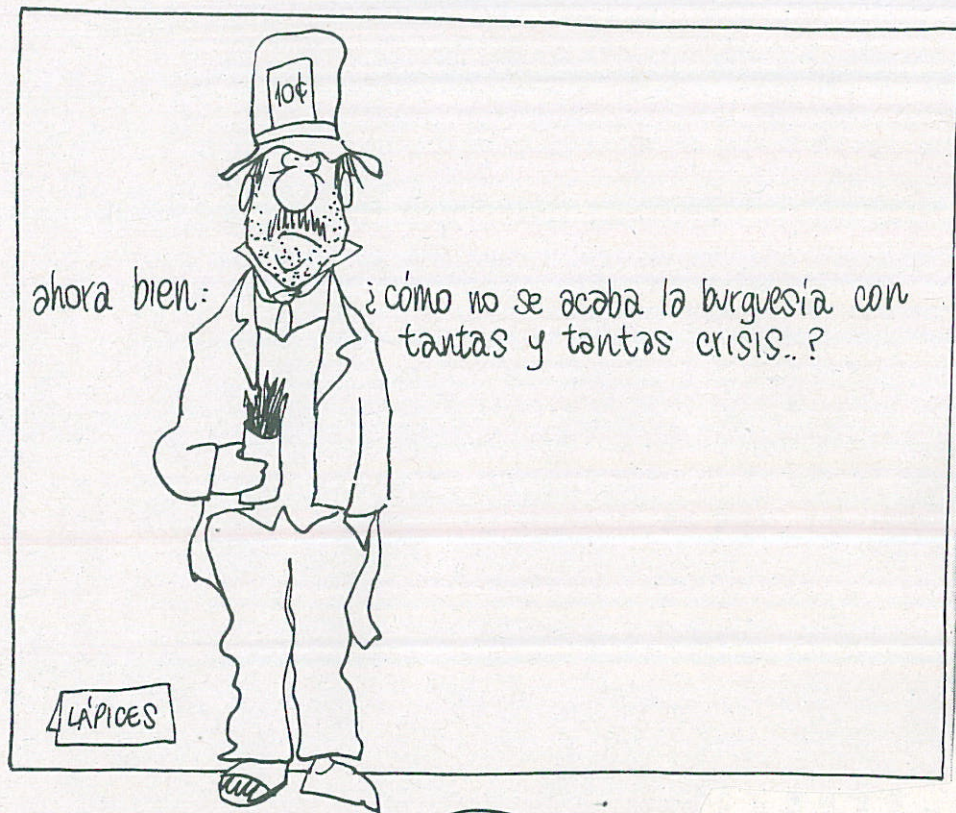 10¢
ahora bien: ¿cómo no se acaba la burguesía con
tantas y tantas crisis..?
LÁPICES